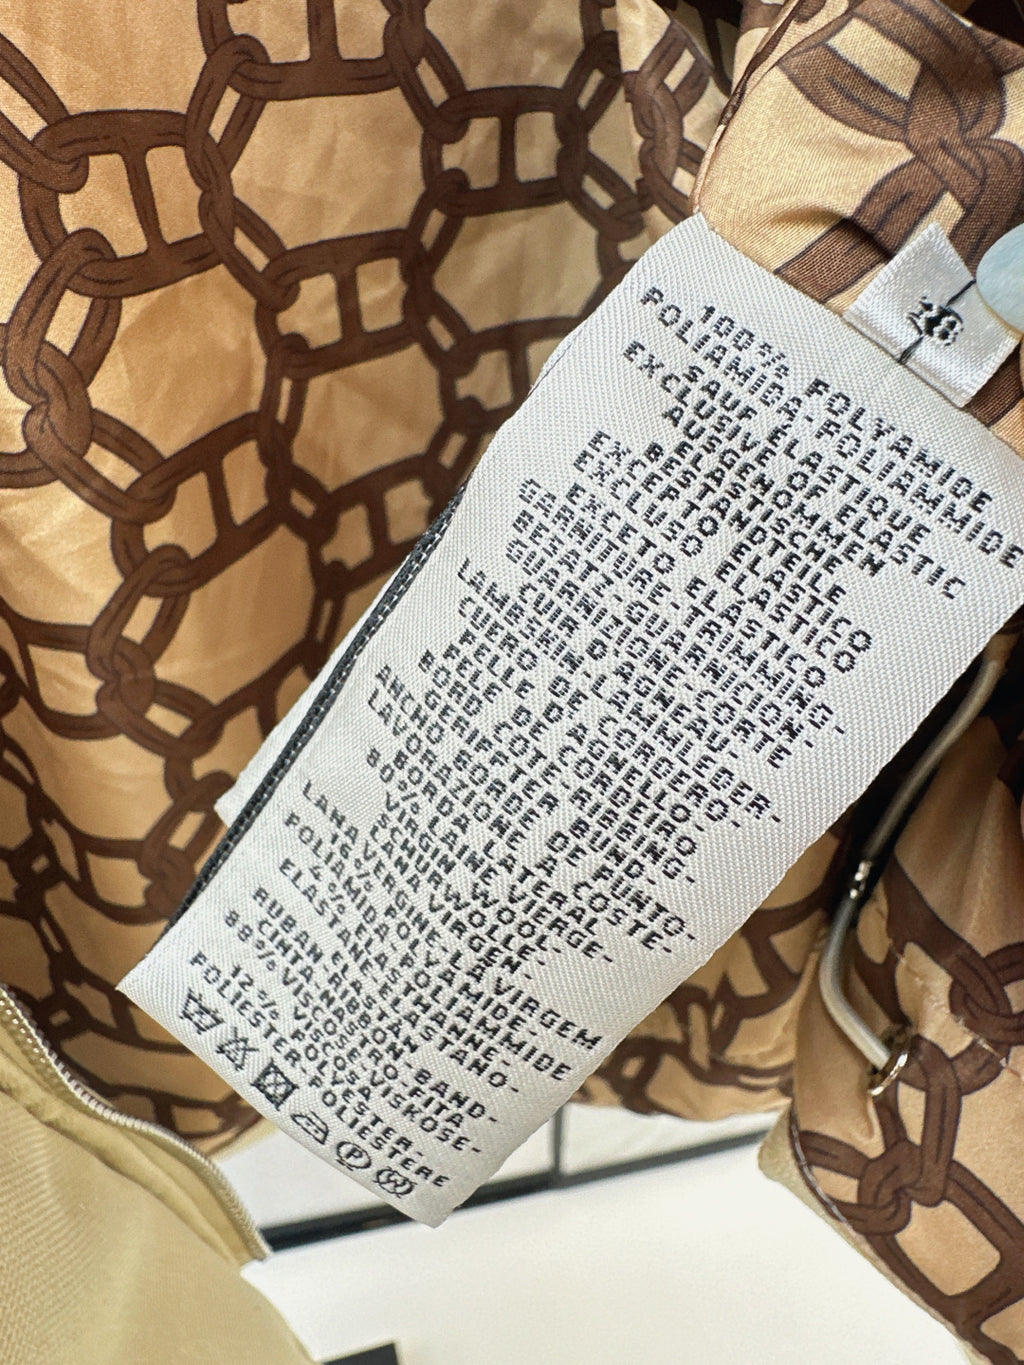 100% POLYAMIDE
POLIAMIDA-POLIAMMIDE
SAUF ELASTIQUE
EXCLUSIVE OF ELASTIC
AUSGENOMMEN
ELASTISCHE
BESTANDTEILE
EXCEPTO ELASTICO
EXCLUSO ELASTICO
EXCETO ELASTICO
GARNITURE-TRIMMING-
BESATZ-GUARNICION-
GUARNIZIONE-CORTE
CUIR D'AGNEAU-
LAMBSKIN-LAMMLEDER-
CUERO DE CORDERO-
PELLE D'AGNELLO-
PELE DE CORDEIRO
BORD COTE-RIBBING-
GERIPPTER BUND-
ANCHO BORDE DE PUNTO-
LAVORAZIONE A COSTE-
BORDA LATERAL
80% LAINE VIERGE-
VIRGIN WOOL-
SCHURWOLLE-
LANA VIRGEN-
LANA VERGINE-LA VIRGEM
16% POLYAMIDE-
POLIAMIDA-POLIAMMIDE
4% ELASTHANNE-
ELASTANE-ELASTANO-
ELASTAN
RUBAN-RIBBON-BAND-
CINTA-NASTRO-FITA
88% VISCOSE-VISKOSE-
VISCOSA
12% POLYESTER-
POLIESTER-POLIESTERE
P
W